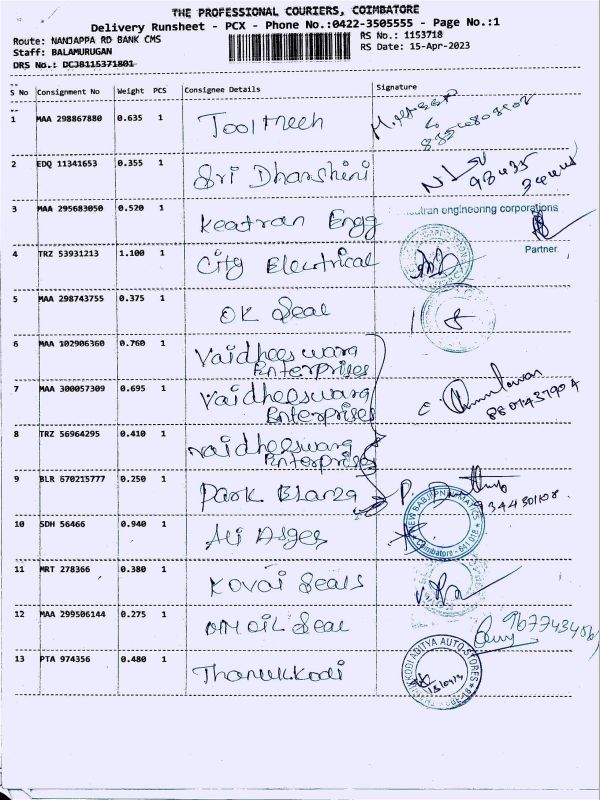 THE PROFESSIONAL COURIERS, COIMBATORE
Delivery Runsheet - PCX - Phone No.:0422-3505555 - Page No.:1
Route: NANJAPPA RD BANK CMS
RS No.: 1153718
Staff: BALAMURUGAN
RS Date: 15-Apr-2023
DRS No.: DCJ8115371801
S No Consignment No Weight PCS Consignee Details Signature
1 MAA 298867880 0.635 1 Tooltech
2 EDQ 11341653 0.355 1 Sri Dharshini
3 MAA 295683050 0.520 1 Keatran Engg
engineering corporations
Partner
4 TRZ 53931213 1.100 1 City Electrical
5 MAA 298743755 0.375 1 OK Seal
6 MAA 102906360 0.760 1 Vaidheeswara
Enterprises
7 MAA 300057309 0.695 1 Vaidheeswara
Enterprises
8 TRZ 56964295 0.410 1 Vaidheeswara
Enterprises
9 BLR 670215777 0.250 1 Park
9344301108
10 SDH 56466 0.940 1 Ali Asger
Coimbatore - 641 018
11 MRT 278366 0.380 1 Kovai Seals
12 MAA 299506144 0.275 1 OM OIL Seal
13 PTA 974356 0.480 1 Thanukkodi
ADITYA AUTO STORES